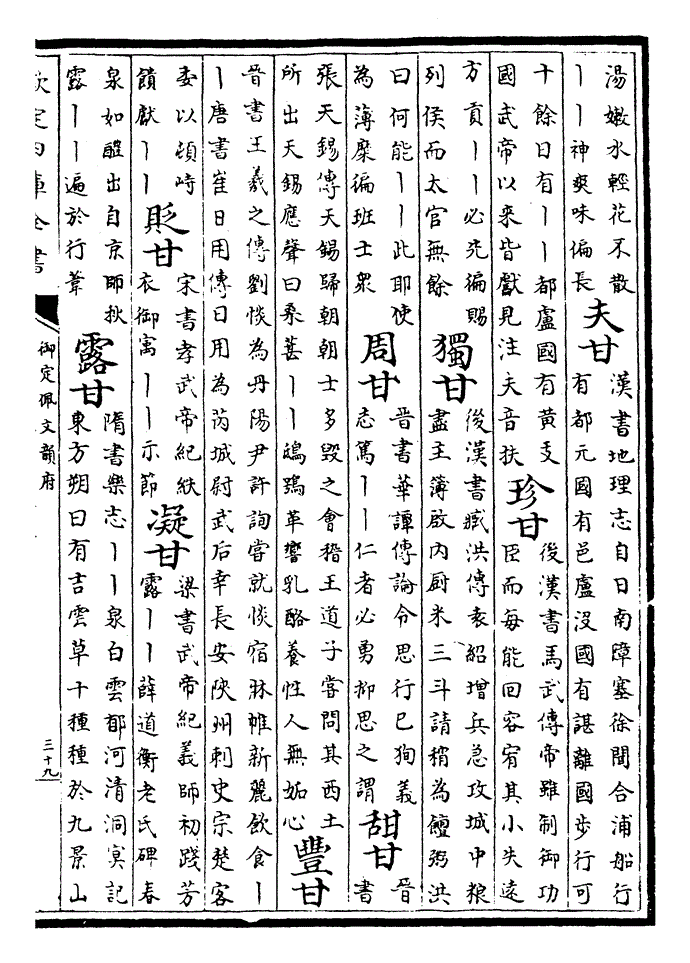 湯嫩水輕花不散
丨丨神爽味偏長
夫甘
漢書地理志自日南障塞徐聞合浦船行
有都元國有邑盧沒國有諶離國步行可
十餘日有丨丨都盧國有黃支
國武帝以來皆獻見注夫音扶
珍甘
後漢書馬武傳帝雖制御功
臣而每能回容宥其小失遠
方貢丨丨必先徧賜
列侯而太官無餘
獨甘
後漢書臧洪傳袁紹增兵急攻城中粮
盡主簿啟内厨米三斗請稍為饘粥洪
曰何能丨丨此耶使
為薄糜徧班士衆
周甘
晉書華譚傳論令思行己狥義
志篤丨丨仁者必勇抑思之謂
甜甘
晉
書
張天錫傳天錫歸朝朝士多毁之會稽王道子嘗問其西土
所出天錫應聲曰桑葚丨丨鴟鴞革響乳酪養性人無妬心
豐甘
晉書王羲之傳劉惔為丹陽尹許詢嘗就惔宿牀帷新麗飲食丨
丨唐書崔日用傳日用為芮城尉武后幸長安陜州刺史宗楚客
委以頓峙
饋獻丨丨
貶甘
宋書孝武帝紀紱
衣御寓丨丨示節
凝甘
梁書武帝紀義師初踐芳
露丨丨薛道衡老氏碑春
泉如醴出自京師秋
露丨丨遍於行葦
露甘
隋書樂志丨丨泉白雲郁河清洞冥記
東方朔曰有吉雲草十種種於九景山
欽定四庫全書
御定佩文韻府
三十九